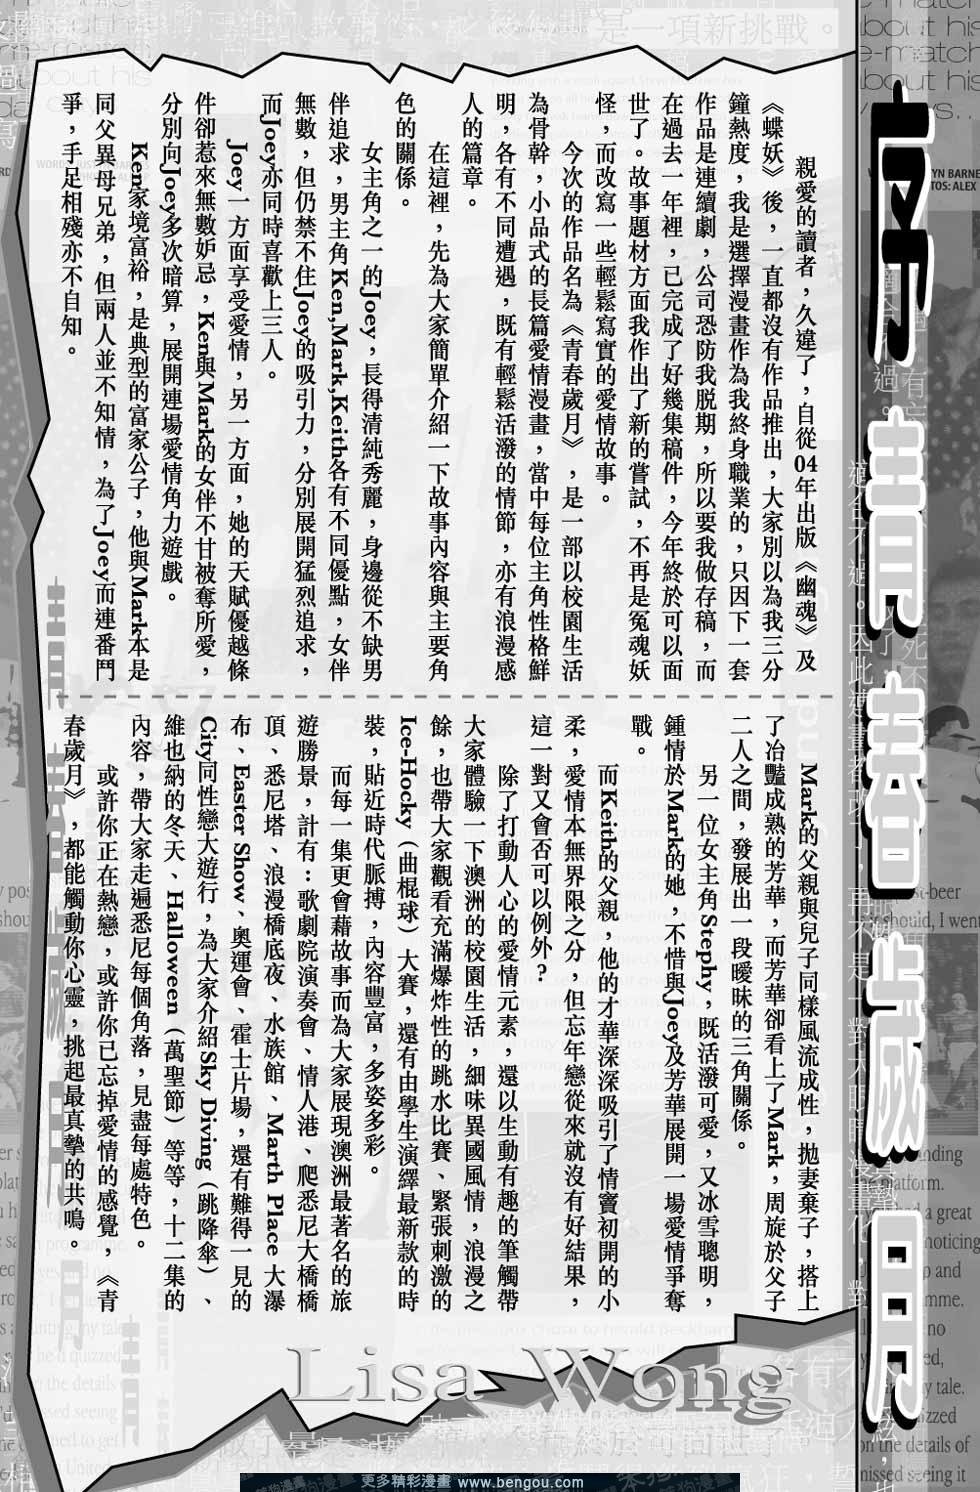 序 青春歲月
親愛的讀者，久違了，自從04年出版《幽魂》及
《蝶妖》後，一直都沒有作品推出，大家別以為我三分
鐘熱度，我是選擇漫畫作為我終身職業的，只因下一套
作品是連續劇，公司恐防我脫期，所以要我做存稿，而
在過去一年裡，已完成了好幾集稿件，今年終於可以面
世了。故事題材方面我作出了新的嘗試，不再是冤魂妖
怪，而改寫一些輕鬆寫實的愛情故事。
今次的作品名為《青春歲月》，是一部以校園生活
為骨幹，小品式的長篇愛情漫畫，當中每位主角性格鮮
明，各有不同遭遇，既有輕鬆活潑的情節，亦有浪漫感
人的篇章。
在這裡，先為大家簡單介紹一下故事內容與主要角
色的關係。
女主角之一的Joey，長得清純秀麗，身邊從不缺男
伴追求，男主角Ken,Mark,Keith各有不同優點，女伴
無數，但仍禁不住Joey的吸引力，分別展開猛烈追求，
而Joey亦同時喜歡上三人。
Joey一方面享受愛情，另一方面，她的天賦優越條
件卻惹來無數妒忌，Ken與Mark的女伴不甘被奪所愛，
分別向Joey多次暗算，展開連場愛情角力遊戲。
Ken家境富裕，是典型的富家公子，他與Mark本是
同父異母兄弟，但兩人並不知情，為了Joey而連番鬥
爭，手足相殘亦不自知。
Mark的父親與兒子同樣風流成性，拋妻棄子，搭上
了冶豔成熟的芳華，而芳華卻看上了Mark，周旋於父子
二人之間，發展出一段曖昧的三角關係。
另一位女主角Stephy，既活潑可愛，又冰雪聰明，
鍾情於Mark的她，不惜與Joey及芳華展開一場愛情爭奪
戰。
而Keith的父親，他的才華深深吸引了情竇初開的小
柔，愛情本無界限之分，但忘年戀從來就沒有好結果，
這一對又會否可以例外？
除了打動人心的愛情元素，還以生動有趣的筆觸帶
大家體驗一下澳洲的校園生活，細味異國風情，浪漫之
餘，也帶大家觀看充滿爆炸性的跳水比賽、緊張刺激的
Ice-Hocky（曲棍球）大賽，還有由學生演繹最新款的時
裝，貼近時代脈搏，內容豐富，多姿多彩。
而每一集更會藉故事而為大家展現澳洲最著名的旅
遊勝景，計有：歌劇院演奏會、情人港、爬悉尼大橋橋
頂、悉尼塔、浪漫橋底夜、水族館、Marth Place大瀑
布、Easter Show、奧運會、霍士片場，還有難得一見的
City同性戀大遊行，為大家介紹Sky Diving（跳降傘）、
維也納的冬天、Halloween（萬聖節）等等，十二集的
內容，帶大家走遍悉尼每個角落，見盡每處特色。
或許你正在熱戀，或許你已忘掉愛情的感覺，《青
春歲月》，都能觸動你心靈，挑起最真摯的共鳴。
Lisa Wong
更多精彩漫畫 www.bengou.com